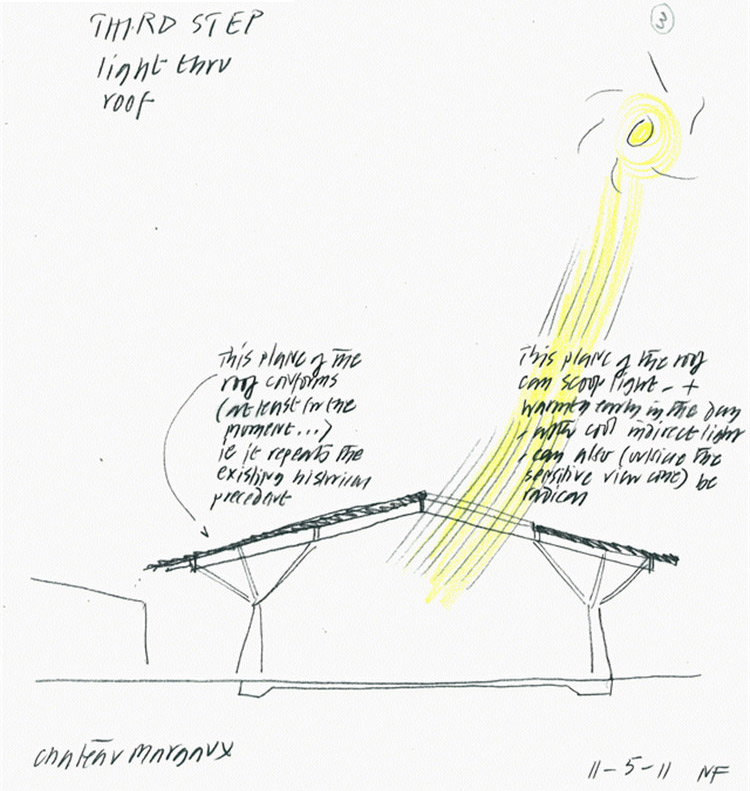 THIRD STEP
light thru
roof
3
This plane of the
roof conforms
(at least for the
moment...)
ie it repeats the
existing historical
precedent
This plane of the roof
can scoop light - +
warmth early in the day
- with cool indirect light
- can also (outside the
sensitive view cone) be
radical
chateau margaux
11-5-11 NF